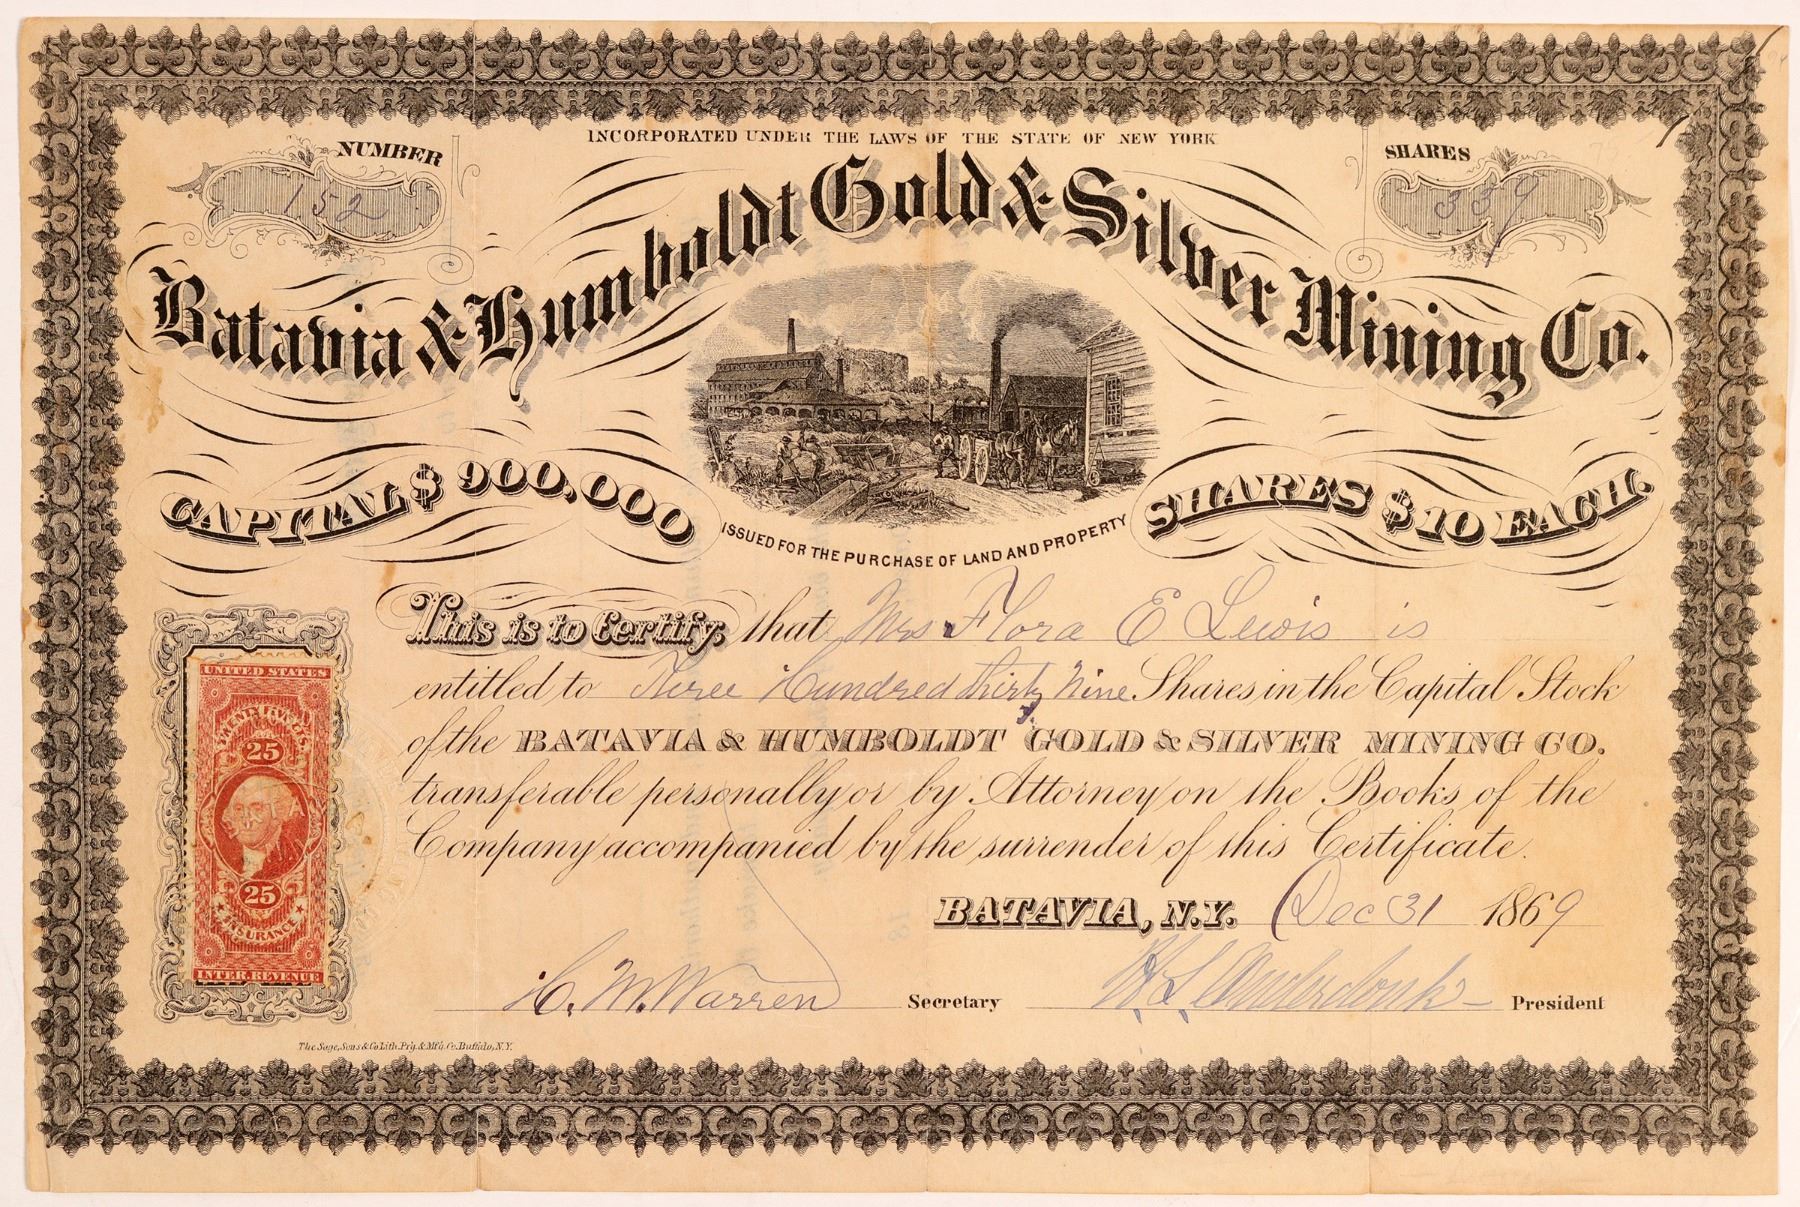 INCORPORATED UNDER THE LAWS OF THE STATE OF NEW YORK
NUMBER
152
SHARES
339
Batavia & Humboldt Gold & Silver Mining Co.
CAPITAL $ 900,000
SHARES $10 EACH.
ISSUED FOR THE PURCHASE OF LAND AND PROPERTY
This is to Certify, that Mrs Flora E Lewis is
entitled to Three Hundred thirty Nine Shares in the Capital Stock
of the BATAVIA & HUMBOLDT GOLD & SILVER MINING CO.
transferable personally or by Attorney on the Books of the
Company accompanied by the surrender of this Certificate.
BATAVIA, N.Y. Dec 31 1869
H. M. Warren Secretary
President
UNITED STATES
25
25
INSURANCE
INTER. REVENUE
The Sage, Sons & Co Lith. Prg. & Mfg. Co. Buffalo, N.Y.